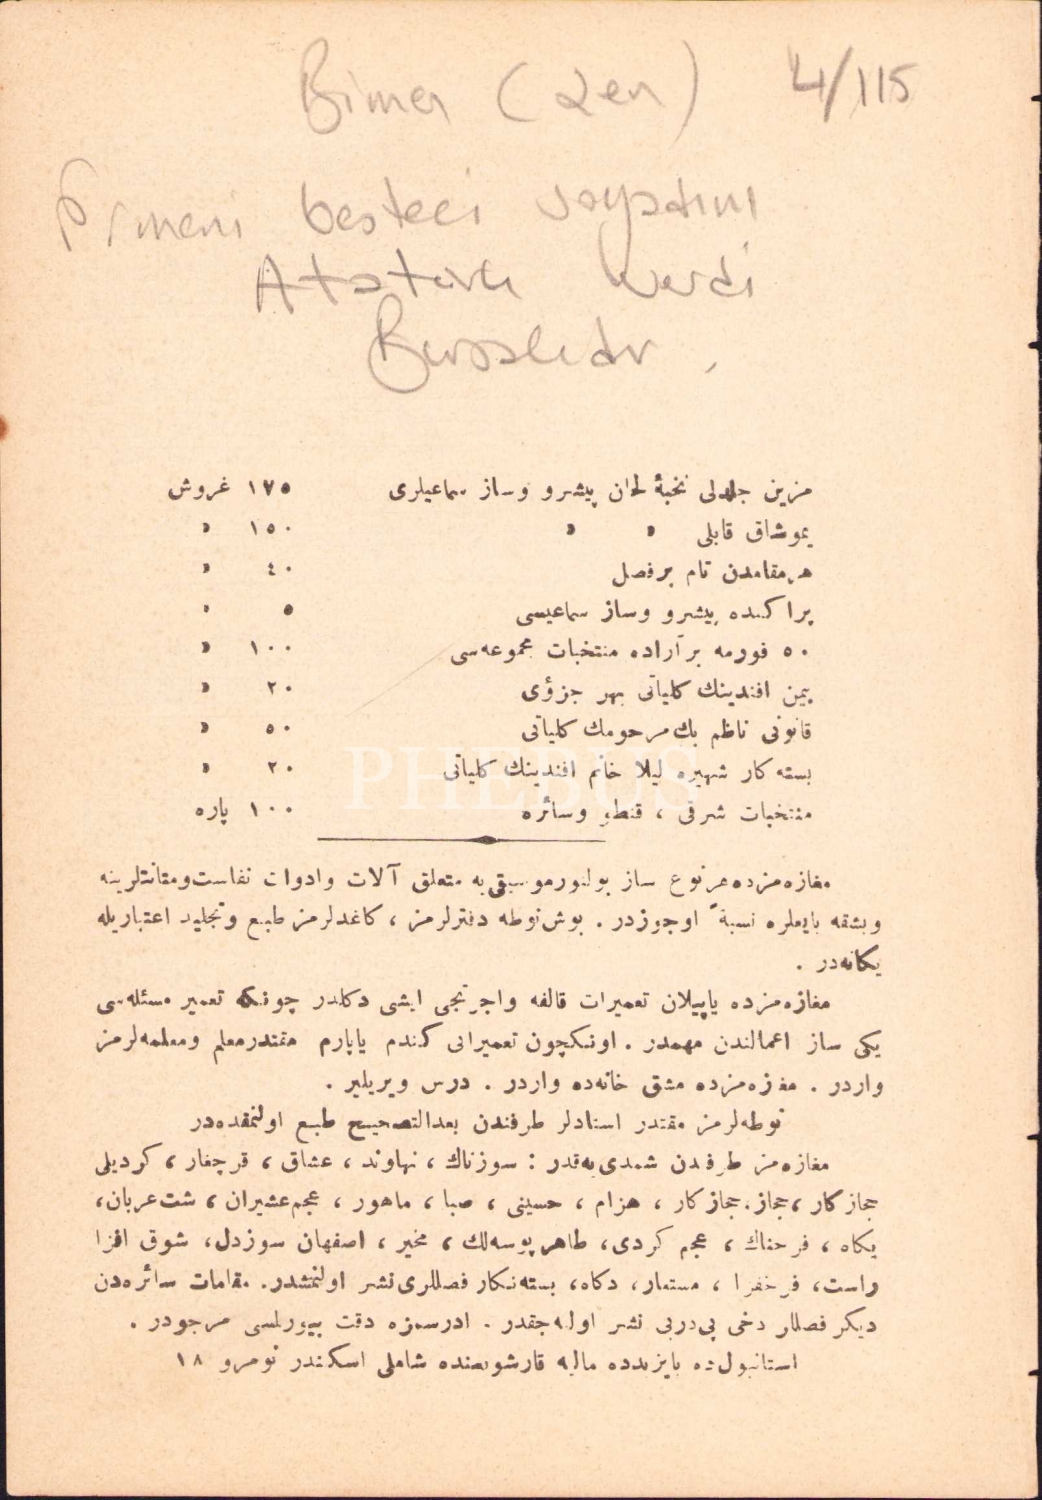 Bimen (Zen) 4/115
Ermeni besteci soyadını
Atatürk verdi
Bursalıdır.
مزین جلدلی نخبهٔ لحان پیشرو و ساز سماعیلری ١٧٥ غروش
یموشاق قابلی » » ١٥٠ »
هر مقامدن تام بر فصل ٤٠ »
پراکنده پیشرو و ساز سماعیسی ٥ »
٥٠ فورمه بر آراده منتخبات مجموعه‌سی ١٠٠ »
بیمن افندینك کلیاتی بهر جزؤی ٢٠ »
قانونی ناظم بك مرحومك کلیاتی ٥٠ »
بسته‌کار شهیره لیلا خانم افندینك کلیاتی ٢٠ »
منتخبات شرقی ، قنطو وسائره ١٠٠ پاره
PHEBUS
مغازه‌مزده هر نوع ساز بولنور موسیقی‌یه متعلق آلات وادوات نفاست ومتانتلرینه
وبشقه بایعلره نسبةً اوجوزدر . بوش نوطه دفترلرمز ، کاغدلرمز طبع وتجلید اعتباریله
یکانه‌در .
مغازه‌مزده یاپیلان تعمیرات قالفه واجرتجی ایشی دکلدر چونکه تعمیر مسئله‌سی
یکی ساز اعمالندن مهمدر . اونکچون تعمیراتی کندم یاپارم مقتدر معلم ومعلمه‌لرمز
واردر . مغازه‌مزده مشق خانه‌ده واردر . درس ویریلیر .
نوطه‌لرمز مقتدر استادلر طرفندن بعدالتصحیح طبع اولنمقده‌در
مغازه‌مز طرفندن شمدی‌یه‌قدر : سوزناك ، نهاوند ، عشاق ، قرجغار ، کردیلی
حجازکار ، حجاز . حجازکار ، هزام ، حسینی ، صبا ، ماهور ، عجم‌عشیران ، شت‌عربان ،
یکاه ، فرحناك ، عجم کردی ، طاهر بوسه‌لك ، مخیر ، اصفهان سوزدل ، شوق افزا
راست ، فرحفزا ، مستعار ، دکاه ، بسته‌نکار فصللری نشر اولنمشدر . مقامات سائره‌دن
دیکر فصللر دخی پی‌درپی نشر اوله‌جقدر . ادرسمزه دقت بیورلمسی مرجودر .
استانبول‌ده بایزیدده مالیه قارشوسنده شاملی اسکندر نومرو ١٨